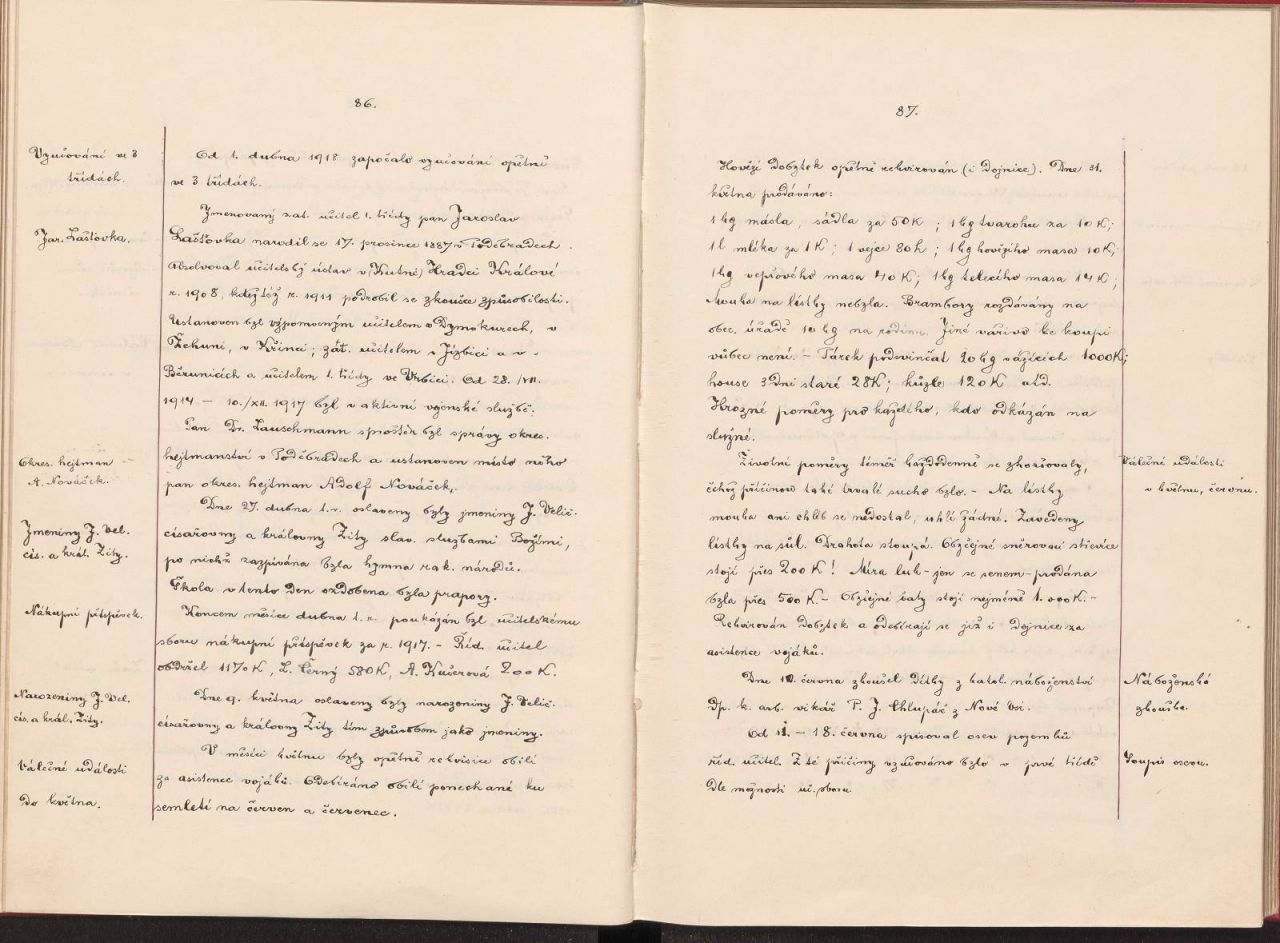 86.
Vyučování ve 3
třídách.
Od 1. dubna 1918 započalo vyučování opětně
ve 3 třídách.
Jmenovaný zat. učitel 1. třídy pan Jaroslav
Jar. Lašťovka.
Lašťovka narodil se 17. prosince 1887 v Poděbradech.
Absolvoval učitelský ústav v Kutné Hradci Králové
r. 1908, kdež též r. 1911 podrobil se zkoušce způsobilosti.
Ustanoven byl výpomocným učitelem v Dymokurech, v
Žehuni, v Křinci; zát. učitelem v Jizbici a v
Běrunicích a učitelem 1. třídy ve Vrbici. Od 28./VII.
1914 – 10./XII. 1917 byl v aktivní vojenské službě.
Pan Dr. Lauschmann sproštěn byl správy okres.
Okres. hejtman
A. Nováček.
hejtmanství v Poděbradech a ustanoven místo něho
pan okres. hejtman Adolf Nováček.
Dne 27. dubna t.r. oslaveny byly jmeniny J. Velič.
Jmeniny J. Vel.
cís. a král. Zity.
císařovny a královny Zity slav. službami Božími,
po nichž zazpívána byla hymna rak. národů.
Škola v tento den ozdobena byla prapory.
Nákupní příspěvek.
Koncem měsíce dubna t. r. poukázán byl učitelskému
sboru nákupní příspěvek za r. 1917. – Říd. učitel
obdržel 1170 K, L. Černý 580 K, A. Kučerová 200 K.
Narozeniny J. Vel.
cís. a král. Zity.
Dne 9. května oslaveny byly narozeniny J. Velič.
císařovny a královny Zity tím způsobem jako jmeniny.
Válečné události
do května.
V měsíci květnu byly opětné rekvisice obilí
za asistence vojáků. Odebíráno obilí ponechané ku
semletí na červen a červenec.
87.
Hovězí dobytek opětně rekvirován (i dojnice). Dne 31.
května prodáváno:
1 kg másla, sádla za 50 K; 1 kg tvarohu za 10 K;
1 l mléka za 1 K; 1 vejce 80 h; 1 kg hovězího masa 10 K;
1 kg vepřového masa 40 K; 1 kg telecího masa 14 K;
Mouka na lístky nebyla. Brambory rozdávány na
obec. úřadě 10 kg na rodinu. Jiné vařivo ke koupi
vůbec není. – Párek podsvinčat 20 kg vážících 1000 K;
house 3 dni staré 28 K; kůzle 120 K atd.
Hrozné poměry pro každého, kdo odkázán na
služné.
Válečné události
v květnu, červnu.
Životní poměry téměř každodenně se zhoršovaly,
čehož příčinou také trvalé sucho bylo. – Na lístky
mouka ani chléb se nedostal, uhlí žádné. Zavedeny
lístky na sůl. Drahota stoupá. Obyčejné šněrovací střevíce
stojí přes 200 K! Míra luk – jen se senem – prodána
byla přes 500 K. – Obyčejné šaty stojí nejméně 1.000 K. –
Rekvirován dobytek a odebírají se již i dojnice za
asistence vojáků.
Náboženská
zkouška.
Dne 10. června zkoušel dítky z katol. náboženství
Dp. k. arb. vikář P. J. Chlupáč z Nové Vsi.
Soupis osevu.
Od 1. – 18. června spisoval osev pozemků
říd. učitel. Z té příčiny vyučováno bylo v prvé třídě
dle možnosti uč. sboru